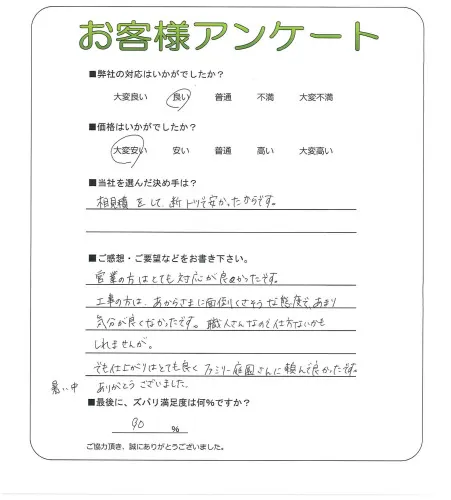 お客様アンケート
■弊社の対応はいかがでしたか？
大変良い 良い 普通 不満 大変不満
■価格はいかがでしたか？
大変安い 安い 普通 高い 大変高い
■当社を選んだ決め手は？
相見積をして、断トツで安かったからです。
■ご感想・ご要望などをお書き下さい。
営業の方はとても対応が良かったです。
工事の方は、あからさまに面倒くさそうな態度で、あまり
気分が良くなかったです。職人さんなので仕方ないかも
しれませんが。
でも仕上がりはとても良く ファミリー庭園さんに頼んで良かったです。
暑い中 ありがとうございました。
■最後に、ズバリ満足度は何%ですか？
90 %
ご協力頂き、誠にありがとうございました。